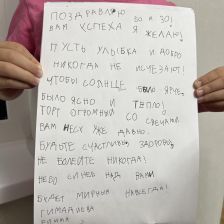 ПОЗДРАВЛЯЮ ВО А ЗО!
ВАМ УСПЕХА Я ЖЕЛАЮ!
ПУСТЬ УЛЫБКА И ДОБРО
НИКОГДА НЕ ИСЧЕЗАЮТ!
ЧТОБЫ СОЛНЦЕ БЫЛО ЯРЧЕ,
БЫЛО ЯСНО И ТЕПЛО!
ТОРТ ОГРОМНЫЙ СО СВЕЧАМИ
ВАМ НЕСУ УЖЕ ДАВНО.
БУДЬТЕ СЧАСТЛИВЫ, ЗДОРОВЫ,
НЕ БОЛЕЙТЕ НИКОГДА!
НЕБО СИНЕЕ НАД ВАМИ
БУДЕТ МИРНЫМ НАВСЕГДА!
ГИМАДИЕВА